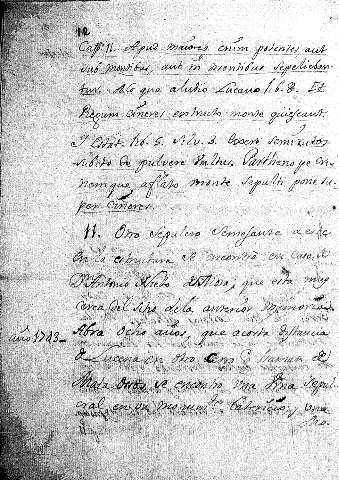 12
Cap. 11. Apud maiores enim potentes aut
sub montibus, aut in montibus sepelieban
tur. A lo que aludio Lucano lib. 8. Et
Regum Cineres extructo monte quiescant.
Y Estat. lib. 5. Silv. 3. Exere semi
subito de pulvere vultus Parthenope
nemque, afflato monte sepulti pone su
per Cineres.
11. Otro Sepulcro Semejante a este
en la estructura se encontró en Casa de
Dn Antonio que esta muy
cerca del sitio de la anterior memoria
año 1743_ Abra ocho años, que a corta distancia
de Lucena en otro Cerro llaman de
Mata se encontro una Urna Sepul
cral en un monumto. Latericio, y una